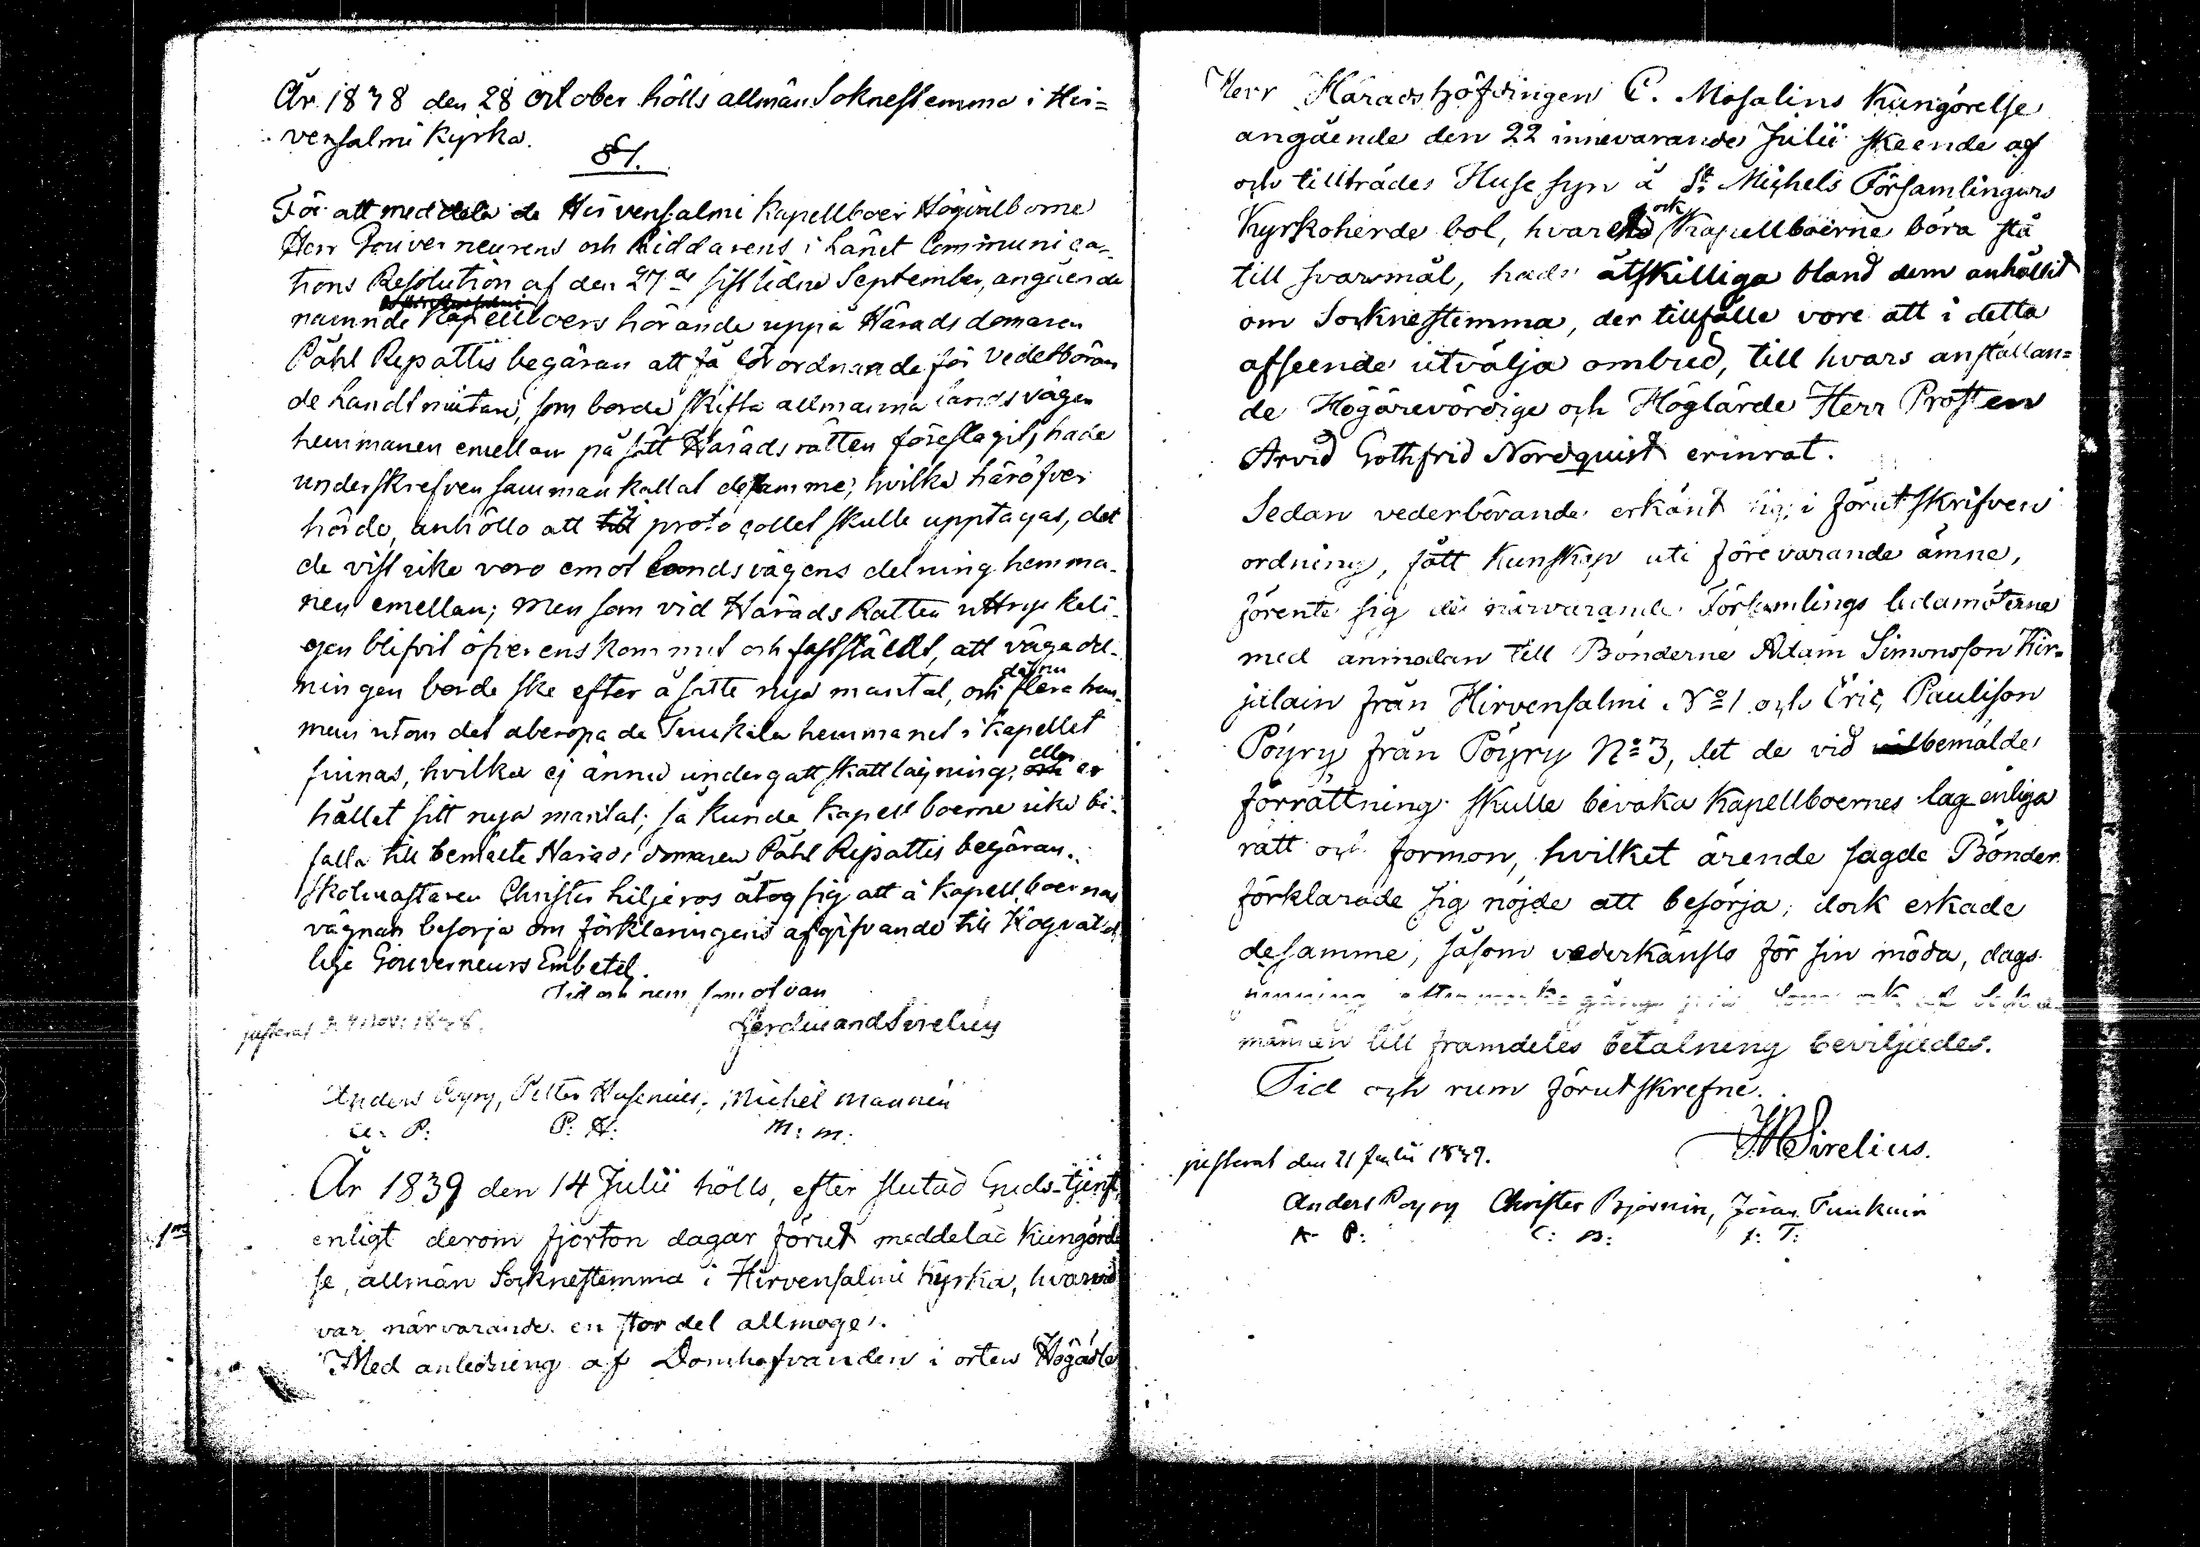 År 1838 den 28 October hölls allmän Soknestemma i Hir=
vensalmi Kyrka.
§1.
För att meddela de Hirvensalmi Kapellboer Högvälborne
Herr Gouverneurens och Riddarens i Länet Communica-
tions Resolution af den 27de sistlidne September, angående
nämnde Kapellboers hörande uppå Härads domaren
Påhl Ripattis begäran att få förordnande för vederböran
de Landtmätare, som borde skifta allmänna landsvägen
hemmanen emellan på sätt Häradsrätten föreslagit, hade
underskrefven sammankallat desamme; hvilka häröfver
hörde, anhöllo att till protocollet skulle upptagas, det
de visst icke voro emot Landsvägens delning hemma-
nen emellan; men som vid Härads Rätten uttryckeli-
gen blifvit öfverenskommit och fastställt, att vägadel-
ningen borde ske efter åsatte nya mantal, och
det nu
flere hem-
man utom det åberopade Tuukkala hemmanet i Kapellet
finnas, hvilka ej ännu undergått skattläggning,
eller
er
hållet sitt nya mantal; så kunde Kapellboerne icke bi-
falla till bemälte Härads domaren Påhl Ripattis begäran.
Skolmästaren Christer Liljeros åtog sig att å Kapellboernas
vägnar besörja om förklaringens afgifvande till Högväl
lige Gouverneurs Embetet.
Tid och rum som ofvan
Ferdinand Sirelius
justerat d. 4 Nov. 1838.
Anders Pöyry, Petter Husenius, Michel Manninen
A. P: P: H: M: M:
År 1839 den 14 Julii hölls, efter slutad Guds-tjenst,
1mo
enligt derom fjorton dagar förut meddelad Kungörel
se, allmän Sockenstemma i Hirvensalmi Kyrka, hvarvid
var närvarande en stor del allmoge.
Med anledning af Domhafvanden i orten Högädle
Herr Häradshöfdingen C. Mosalins Kungörelse
angående den 22 innevarande Julii skeende af
och tillträdes Huse syn å St. Michels Församlingars
Kyrkoherde bol, hvar
ock
Kapellboerne böra stå
till svarsmål, hade åtskilliga bland dem anhållit
om Socknestemma, der tillfälle vore att i detta
afseende utvälja ombud, till hvars anställan=
de Högärevördige och Höglärde Herr Prosten
Arvid Gothfrid Nordquist erinrat.
Sedan vederbörande erkänt sig, i förutskrifven
ordning, fått Kunskap uti förevarande ämne,
förente sig de närvarande Församlings ledamöterne
med anmodan till Bönderne Adam Simonsson Kir=
jalain från Hirvensalmi No 1 och Eric Paulsson
Pöyry från Pöyry No 3, det de vid bemälde
förrättning skulle bevaka Kapellboernes lag-enliga
rätt och förmon, hvilket ärende sagde Bönder
förklarade sig nöjde att besörja; dock eskade
desamme, såsom vederkänsla för sin möda, dags
männen till framdeles betalning beviljades.
Tid och rum förutskrefne.
Sirelius.
justerat den 21 Julii 1839.
Anders Pöyry Christer Björnin, Jöran Tuukain
A. P: C: B: J: T: